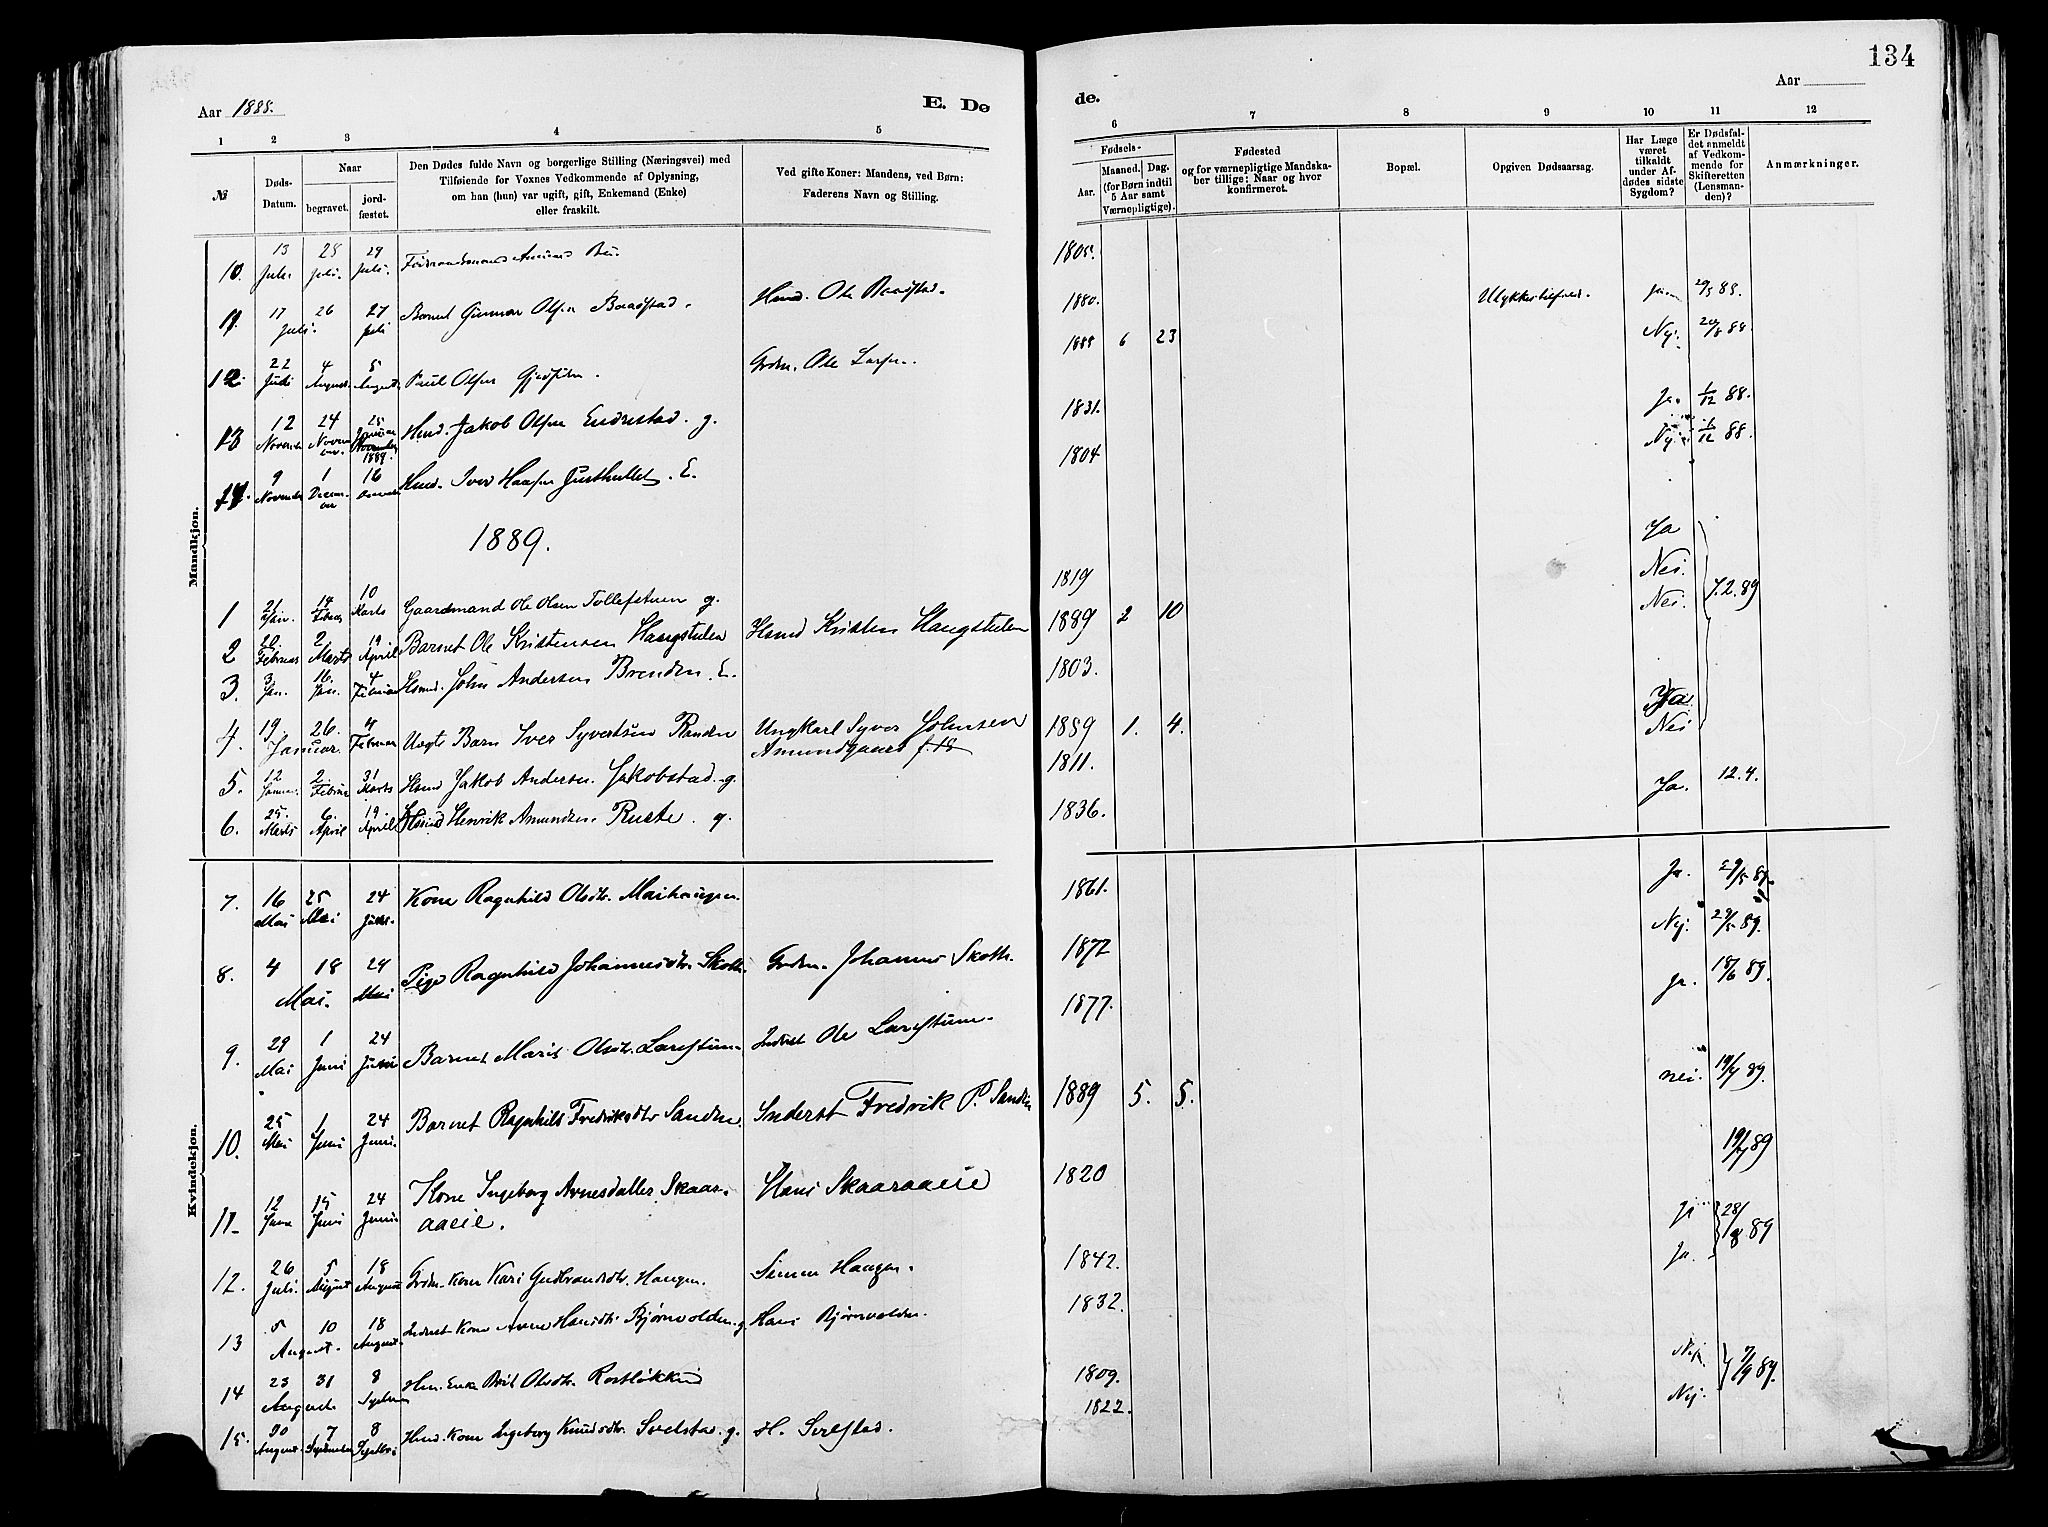 134
Aar 1888.
E. Dø
de.
Aar
1 2 3 4 5 6 7 8 9 10 11 12
№
Døds-Datum.
Naar
begravet.
jord-fæstet.
Den Dødes fulde Navn og borgerlige Stilling (Næringsvei) med
Tilføiende for Voxnes Vedkommende af Oplysning,
om han (hun) var ugift, gift, Enkemand (Enke)
eller fraskilt.
Ved gifte Koner: Mandens, ved Børn:
Faderens Navn og Stilling.
Fødsels-
Aar.
Maaned. Dag.
(for Børn indtil
5 Aar samt
Værnepligtige).
Fødested
og for værnepligtige Mandska-
ber tillige: Naar og hvor
konfirmeret.
Bopæl.
Opgiven Dødsaarsag.
Har Læge
været
tilkaldt
under Af-
dødes sidste
Sygdom?
Er Dødsfal-
det anmeldt
af Vedkom-
mende for
Skifteretten
(Lensman-
den)?
Anmærkninger.
Mandkjøn.
10. 13 Juli. 28 Juli. 29 Juli. 1805.
11. 17 26 Juli. 27 Juli Barnet Gunnar Olsen Baadstad. Hmd. Ole Baadstad. 1880. Ulykkestilfæld. Ja 88.
12. 22 Juli 4 August 5 August Paul Olsen Grdm. Ole Larsen. 1888 6 23 Nej. 88.
13 12 November 24 Novem 25 Januar 1889. Hmd. Jakob Olsen Endrestad. g. 1831. Ja. 1/12 88.
14. 9 November 1 Decem 16 Hmd. Iver E. 1804 Nej. 1/12 88.
1889.
1 21 Jan. 14 Februar 10 Marts Gaardmand Ole Olsen Tollefstuen g. 1819 Ja
2 20 Februar 2 Marts 19 April Barnet Ole Kristensen Haugstulen Hsmd Kristen Haugstulen 1889 2 10 Nei.
3. 3. Jan. 16. Jan. 4 Februar Hsmd. John Andersen Brenden. E. 1803. Nei. 7.2.89
4. 19. 26. Januar. 4 Februar Uægte Barn Iver Syvertsen Randen Ungkarl Syver Johnsen 1889 1. 4. Ja
Amundgaard f. 18
5. 12 Januar 2 Februar 31 Marts Hsmd Jakob Andersen. Jakobstad. g. 1811. Nei
6. 25. Marts 6. April 19 April Hsmd Henrik Amundsen. Ruste. g. 1836. Ja. 12.4.
Kvindekjøn.
7. 16 Mai 25 Mai 24 Juni Kone Ragnhild Olsdtr. Maihaugen. 1861. Ja. 29/5 89.
8. 4 18 Mai. 24 Mai Pige Ragnhild Johannesdtr. Skotte Grdm. Johannes Skotte. 1872 Nej. 29/5 89.
9. 29 Mai 1 Juni 24 Juni Barnet Marit Olsdtr. Larsstuen. Inderst Ole Larsstuen. 1877. Ja. 18/6 89.
10. 25 Mai 1 Juni 24 Juni. Barnet Ragnhild Fredriksdtr Sanden. Inderst Fredrik P. Sanden 1889 5. 5. nei. 19/7 89.
11 12 Juni 15 Juni 24 Juni Kone Ingeborg Arnesdatter Skaar- Hans Skaaraaeie 1820 19/7 89
aaeie.
12. 26 Juli. 5 August 18 August Grdm. Kone Kari Gudbrandsdtr. Haugen. Simen Haugen. 1842. Ja 28/8 89
13 5 10 August. 18 August. Inderst Kone Anne Hansdtr. Bjørnvolden. g. Hans Bjørnvolden. 1832. Ja.
14 23 31 August 8 Septem Hsm. Enke Brit Olsdtr. 1809. Nej. 7/9 89.
15. 30 August. 7 September 8 Septbr. Hmd. Kone Ingeborg Knudsdtr. g. H. 1822. Nej.